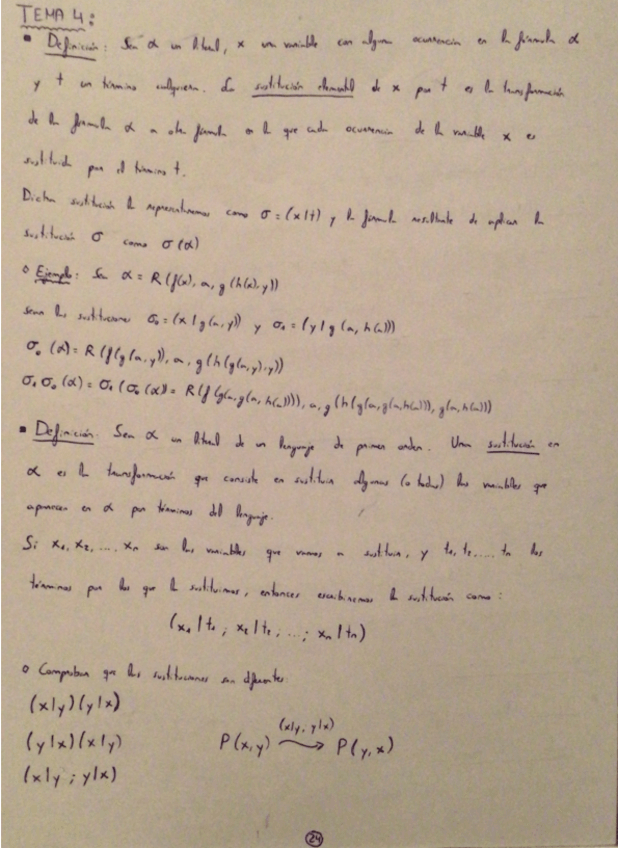 TEMA 4:
▪ Definición: Sea α un literal, x una variable con alguna ocurrencia en la fórmula α
y t un término cualquiera. La sustitución elemental de x por t es la transformación
de la fórmula α a otra fórmula en la que cada ocurrencia de la variable x es
sustituida por el término t.
Dicha sustitución la representaremos como σ = (x|t) y la fórmula resultante de aplicar la
sustitución σ como σ(α)
o Ejemplo: Sea α = R(f(x), a, g(h(x), y))
sean las sustituciones σ₀ = (x | g(a, y)) y σ₁ = (y | g(a, h(a)))
σ₀(α) = R(f(g(a, y)), a, g(h(g(a, y), y))
σ₁σ₀(α) = σ₁(σ₀(α)) = R(f(g(a, g(a, h(a)))), a, g(h(g(a, g(a, h(a))), g(a, h(a)))
▪ Definición: Sea α un literal de un lenguaje de primer orden. Una sustitución en
α es la transformación que consiste en sustituir algunas (o todas) las variables que
aparecen en α por términos del lenguaje.
Si x₁, x₂, ..., xₙ son las variables que vamos a sustituir, y t₁, t₂, .... tₙ los
términos por los que la sustituimos, entonces escribiremos la sustitución como:
(x₁ | t₁ ; x₂ | t₂ ; ... ; xₙ | tₙ)
o Comprobar que las sustituciones son diferentes:
(x|y)(y|x)
(y|x)(x|y) P(x, y) (x|y, y|x) ⟿ P(y, x)
(x|y ; y|x)
24